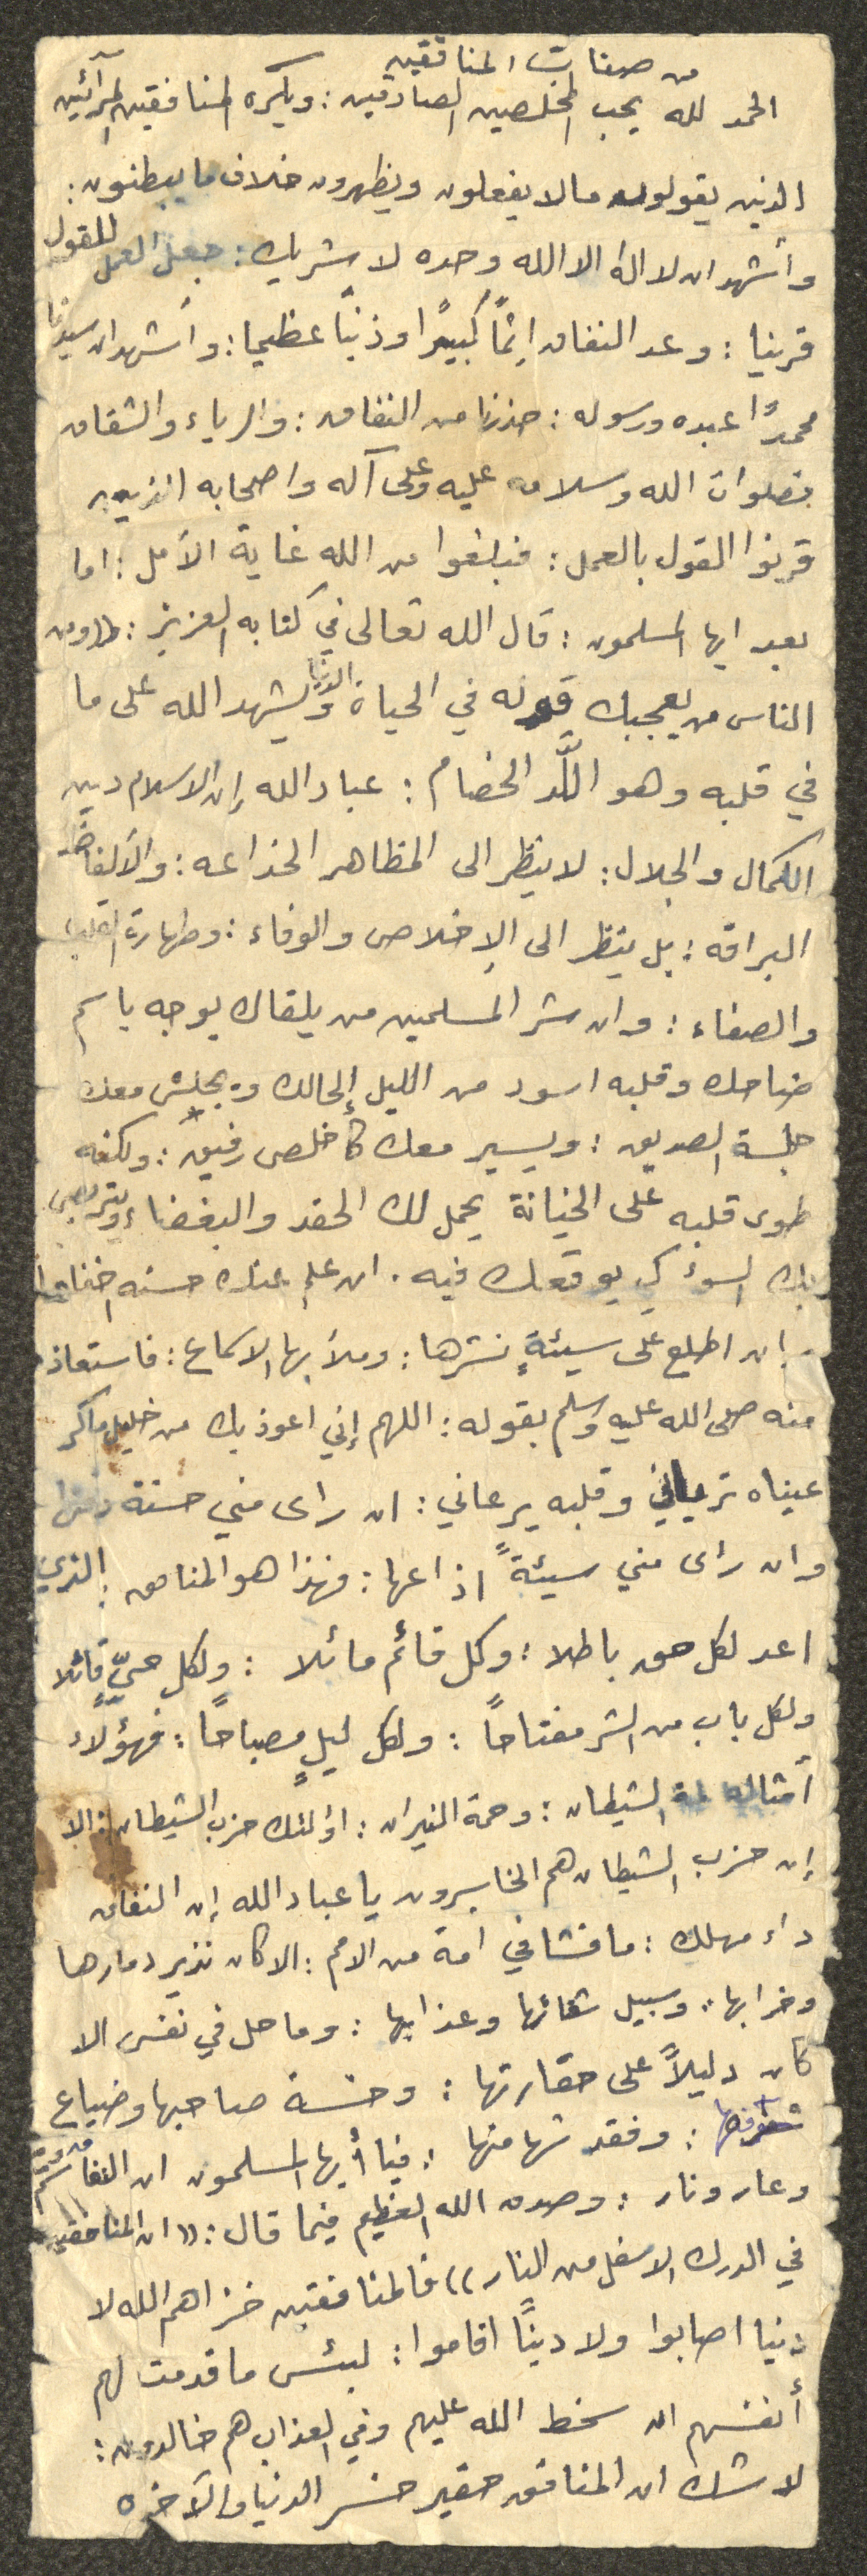 من صفات المنافقين
الحمد لله يحب المخلصين الصادقين : ويكره المنافقين المرآئين
الذين يقولون مالا يفعلون ويظهرون خلاف ما يبطنون :
وأشهد ان لا اله الا الله وحده لا شريك : جعل العمل للقول
قرينا : وعد النفاق اثمًا كبيرًا وذنبًا عظيما : وأشهد ان سيدنا
محمدًا عبده ورسوله : حذرنا من النفاق : والرياء والشقاق
فصلوات الله وسلامه عليه وعلى آله واصحابه الذين
قرنوا القول بالعمل : فبلغوا من الله غاية الأمل : اما
بعد ايها المسلمون : قال الله تعالى في كتابه العزيز : (( ومن
الناس من يعجبك قوله في الحياة الدنيا ويشهد الله على ما
في قلبه وهو ألَدّ الخصام : عباد الله إن الاسلام دين
الكمال والجلال : لا ينظر الى المظاهر الخداعه : والألفاظ
البراقه : بل ينظر الى الإخلاص والوفاء : وطهارة القلب
والصفاء : وان شر المسلمين من يلقاك بوجه باسم
ضاحك وقلبه اسود من الليل الحالك ويجلس معك
جلسة الصديق : ويسير معك كأخلص رفيق : ولكنه
طوى قلبه على الخيانة يحمل لك الحقد والبغضاء ويتربص
بك السوء كي يوقعك فيه . ان علم عنك حسنه اخفاها
وان اطلع على سيئةٍ نشرها : وملأ بها الاسماع : فاستعاذ
منه صلى الله عليه وسلم بقوله : اللهم إني اعوذ بك من خليل ماكر
عيناه ترياني وقلبه يرعاني : ان راى مني حسنة دفنها
وان راى مني سيئةً اذاعها : فهذا هو المنافق : الذي
اعد لكل حق باطلا : وكل قائم مائلا : ولكل حيٍّ قاتلا
ولكل باب من الشر مفتاحًا : ولكل ليلٍ مصباحًا : فهؤلاء
أمثاله لمة الشيطان : وحمة النيران : اؤلئك حزب الشيطان : الا
إن حزب الشيطان هم الخاسرون يا عباد الله إن النفاق
داء مهلك : ما فشا في امة من الامم : الا كان نذير دمارها
وخرابها : وسبيل شقائها وعذابها : وما حل في نفس الا
كان دليلاً على حقارتها : وخسة صاحبها وضياع
شرفها : وفقد شهامتها : فيا أيها المسلمون ان النفاق
وعار ونار : وصدق الله العظيم فيما قال : (( ان المنافقين
في الدرك الاسفل من النار )) فالمنافقين خزاهم الله لا
دنيا اصابوا ولا دينًا اقاموا : لبئس ما قدمت لهم
أنفسهم ان سخط الله عليهم وفي العذاب هم خالدون :
لا شك ان المنافق حقير خسر الدنيا والآخره